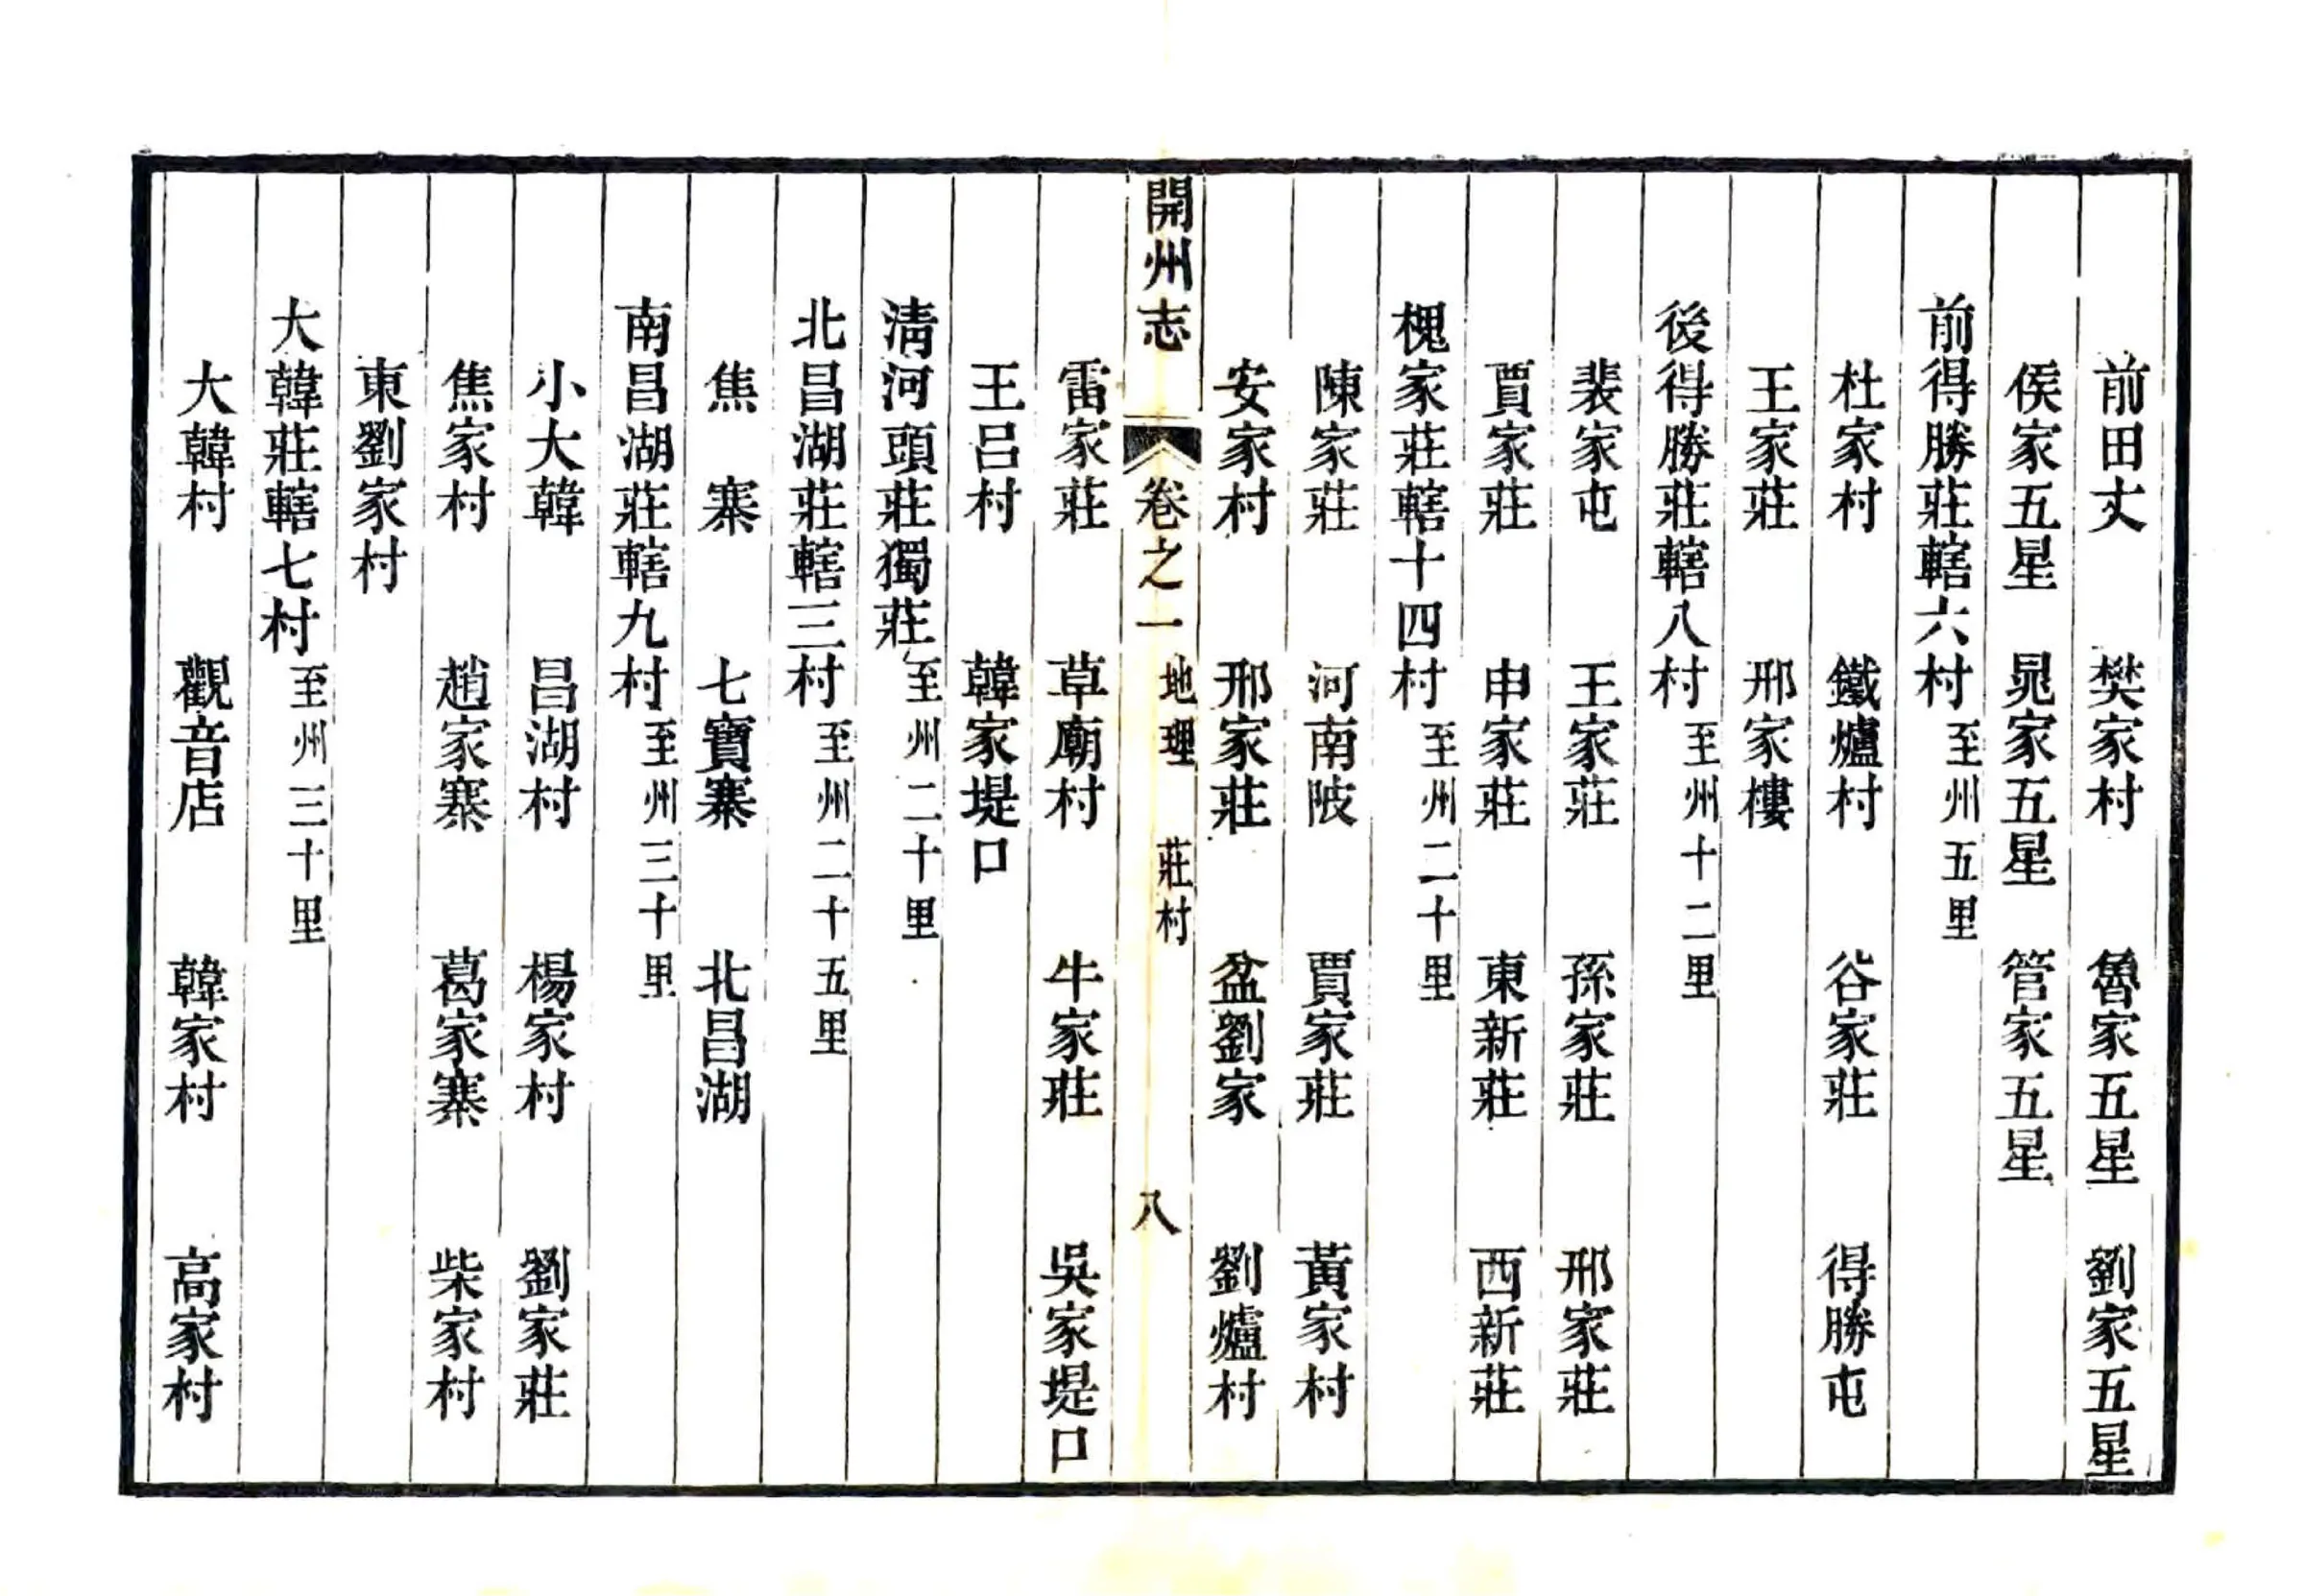 前田丈　樊家村　魯家五星　劉家五星
侯家五星　晁家五星　管家五星
前得勝莊轄六村至州五里
杜家村　鐵爐村　谷家莊　得勝屯
王家莊　邢家樓
後得勝莊轄八村至州十二里
裴家屯　王家莊　孫家莊　邢家莊
賈家莊　申家莊　東新莊　西新莊
槐家莊轄十四村至州二十里
陳家莊　河南陂　賈家莊　黃家村
安家村　邢家莊　盆劉家　劉爐村
開州志　卷之一　地理　莊村　八
雷家莊　草廟村　牛家莊　吳家堤口
王呂村　韓家堤口
清河頭莊獨莊至州二十里
北昌湖莊轄三村至州二十五里
焦寨　七寶寨　北昌湖
南昌湖莊轄九村至州三十里
小大韓　昌湖村　楊家村　劉家莊
焦家村　趙家寨　葛家寨　柴家村
東劉家村
大韓莊轄七村至州三十里
大韓村　觀音店　韓家村　高家村